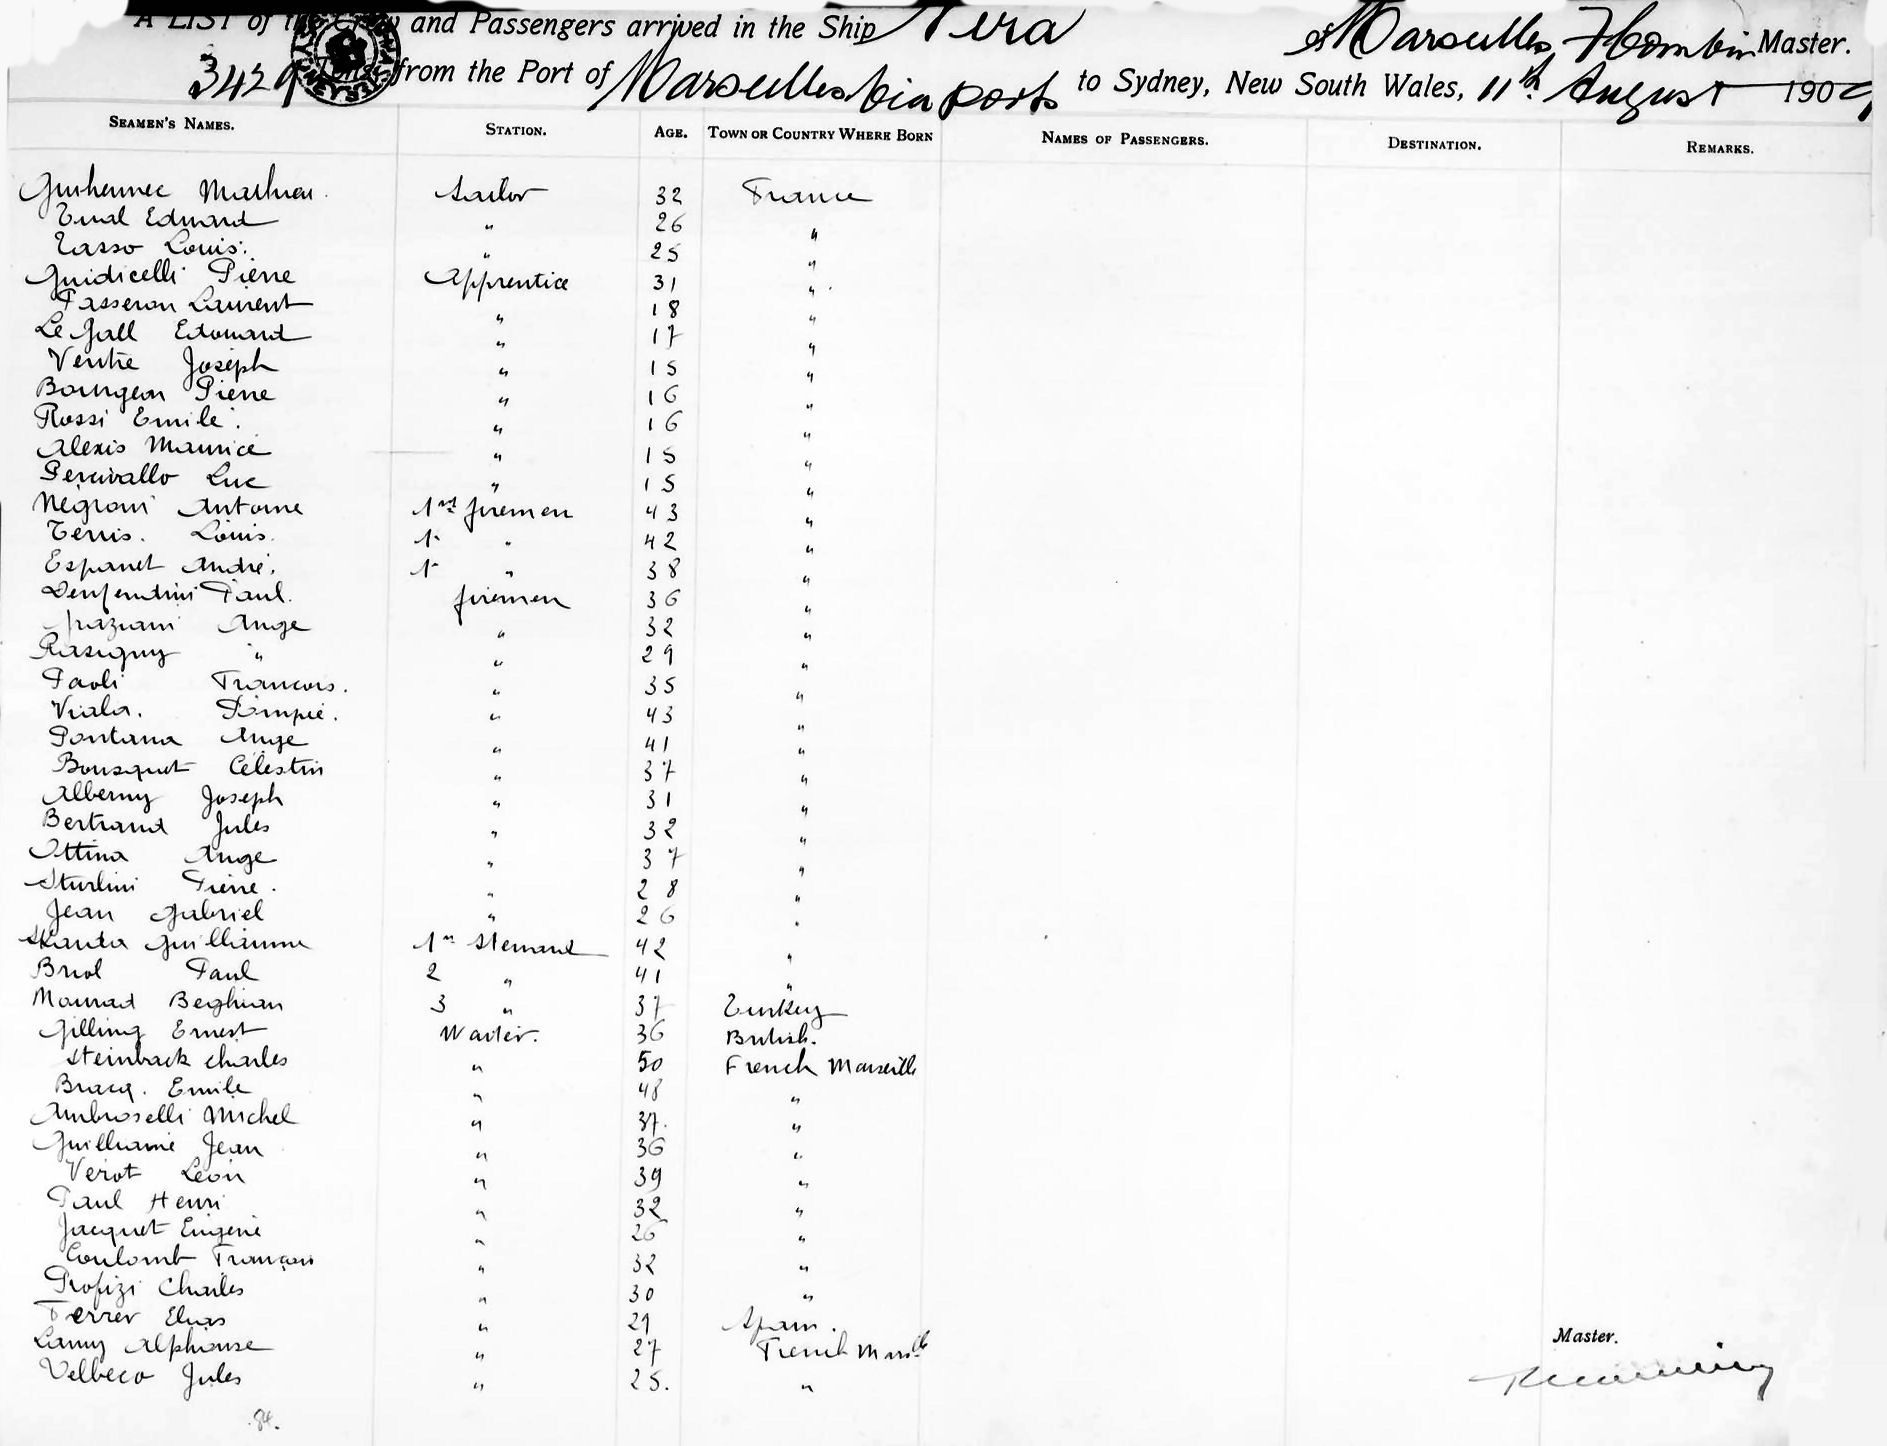 A LIST of the Crew and Passengers arrived in the Ship Nera of Marseilles, Hombin Master.
3429 Tons, from the Port of Marseilles via ports to Sydney, New South Wales, 11th August 1909
SEAMEN'S NAMES. STATION. AGE. TOWN OR COUNTRY WHERE BORN NAMES OF PASSENGERS. DESTINATION. REMARKS.
Guihennec Mathieu. Sailor 32 France
Tual Edouard " 26 "
Tasso Louis. " 25 "
Guidicelli Pierre Apprentice 31 "
Passeron Laurent " 18 "
Le Gall Edouard " 17 "
Ventre Joseph " 15 "
Bourgeon Pierre " 16 "
Rossi Emile. " 16 "
Alexis Maurice " 15 "
Percivallo Luc " 15 "
Negroni Antoine 1st firemen 43 "
Terris. Louis. 1- " 42 "
Espanet André. 1- " 38 "
Paul. firemen 36 "
Graziani Ange " 32 "
Rasigny " " 29 "
Paoli Francois. " 35 "
Viala. Pompée. " 43 "
Pontana Ange " 41 "
Bousquet Célestin " 37 "
Alberny Joseph " 31 "
Bertrand Jules " 32 "
Ottina Ange " 37 "
Sturlini Pierre. " 28 "
Jean Gabriel " 26 "
Guillaume 1st Steward 42 "
Briol Paul 2 " 41 "
Mourad Beghian 3 " 37 Turkey
Gilling Ernest Waiter. 36 British.
Steinback Charles " 50 French Marseille
Bracq. Emile " 48 "
Ambroselli Michel " 37. "
Guilhame Jean " 36 "
Verot Léon " 39 "
Paul Henri " 32 "
Jacquet Eugene " 26 "
Coulomb Francois " 32 "
Profizi Charles " 30 "
Ferrer Elias " 29 Spain.
Lamy Alphonse " 27 French Marslle
Velbeco Jules " 25. "
Master.
84.